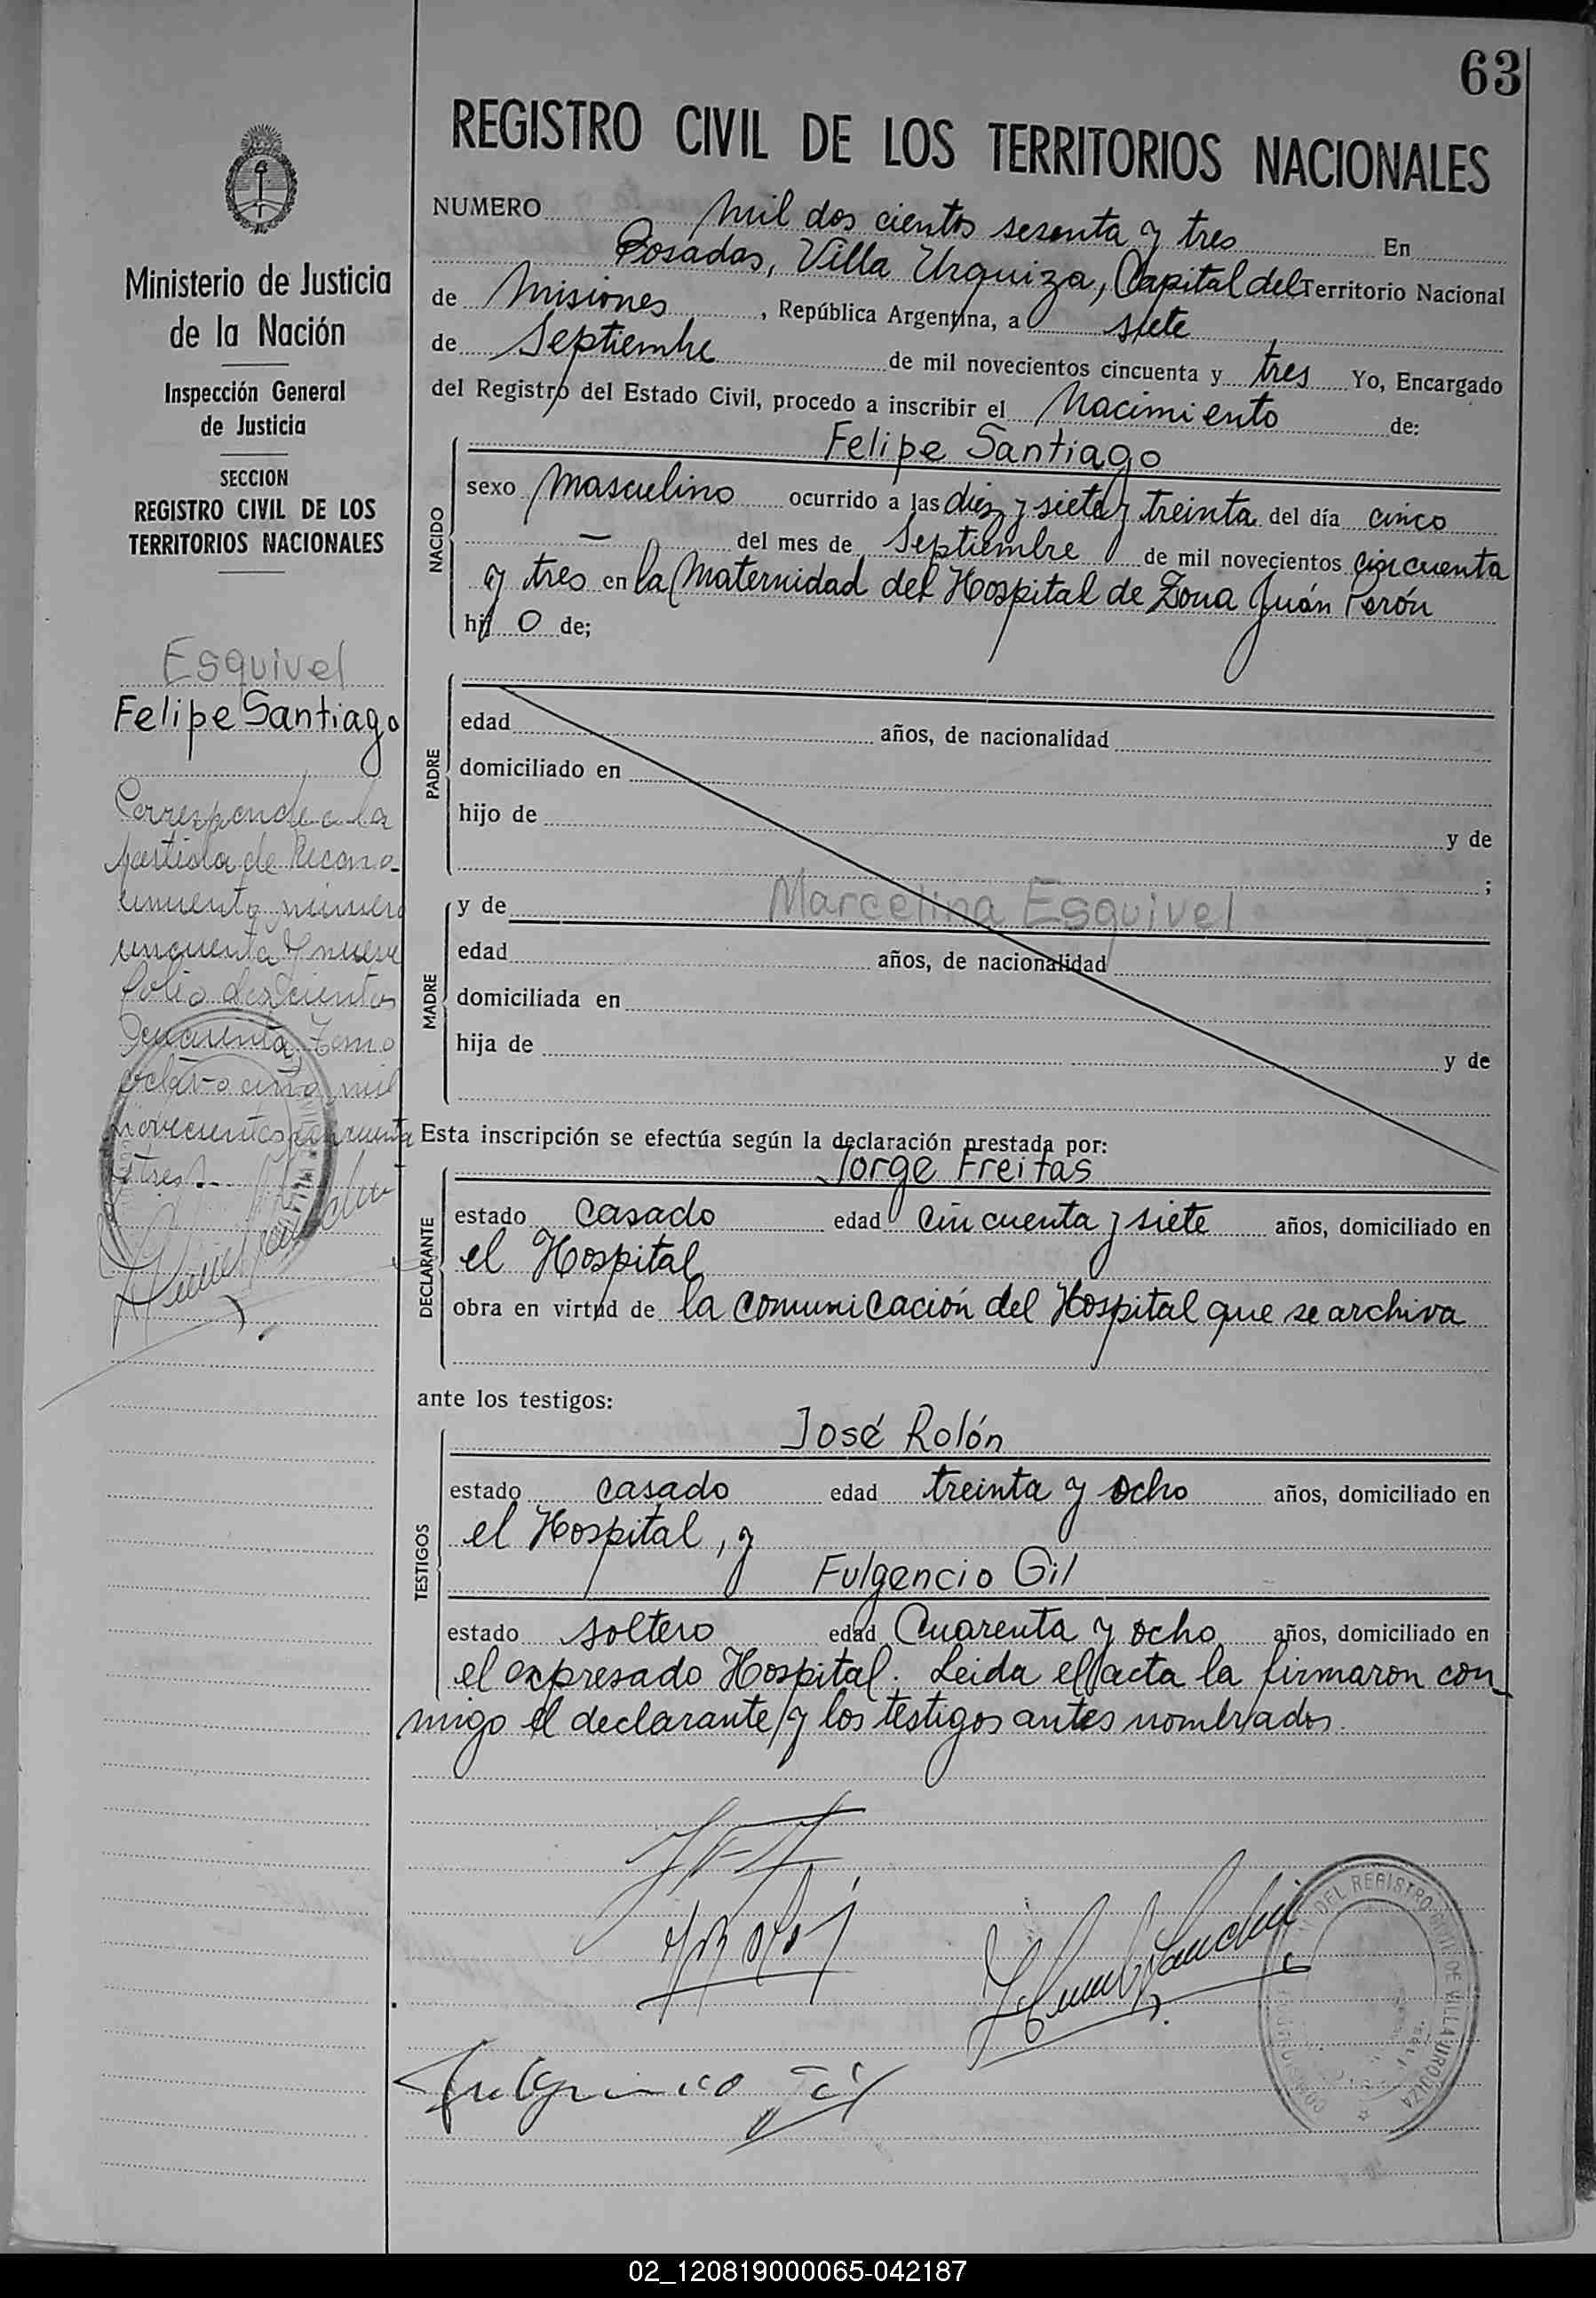 63
REGISTRO CIVIL DE LOS TERRITORIOS NACIONALES
Ministerio de Justicia
de la Nación
Inspección General
de Justicia
SECCION
REGISTRO CIVIL DE LOS
TERRITORIOS NACIONALES
Esquivel
Felipe Santiago
Corresponde a la
partida de Recono-
cimiento número
cincuenta y nueve
folio doscientos
cincuenta, Tomo
octavo año mil
novecientos cincuenta
y tres.
NUMERO mil dos cientos sesenta y tres En
Posadas, Villa Urquiza, Capital del Territorio Nacional
de Misiones, República Argentina, a siete
de Septiembre de mil novecientos cincuenta y tres Yo, Encargado
del Registro del Estado Civil, procedo a inscribir el Nacimiento de:
NACIDO
Felipe Santiago
sexo Masculino ocurrido a las diez y siete y treinta del día cinco
— del mes de Septiembre de mil novecientos cincuenta
y tres en la Maternidad del Hospital de Zona Juán Perón
hijo de;
PADRE
edad años, de nacionalidad
domiciliado en
hijo de y de
;
MADRE
y de Marcelina Esquivel
edad años, de nacionalidad
domiciliada en
hija de y de
Esta inscripción se efectúa según la declaración prestada por:
DECLARANTE
Jorge Freitas
estado casado edad cincuenta y siete años, domiciliado en
el Hospital
obra en virtud de la comunicación del Hospital que se archiva
ante los testigos:
TESTIGOS
José Rolón
estado casado edad treinta y ocho años, domiciliado en
el Hospital, y
Fulgencio Gil
estado soltero edad Cuarenta y ocho años, domiciliado en
el expresado Hospital. Leida el acta la firmaron con-
migo el declarante y los testigos antes nombrados.
DEL REGISTRO CIVIL DE VILLA URQUIZA
02_120819000065-042187